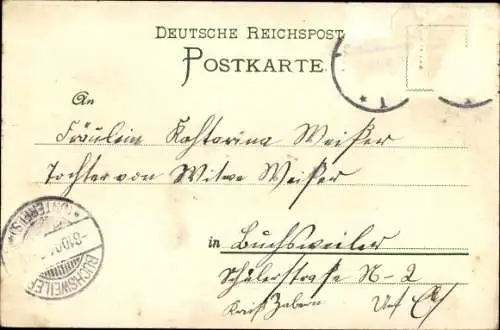 DEUTSCHE REICHSPOST
POSTKARTE
An
Fräulein Kahtarina Weißer
Tochter von Witwe Weißer
in Buchsweiler
Schülerstraße N-2
Kreis Zabern Unt
BUCHSWEILER